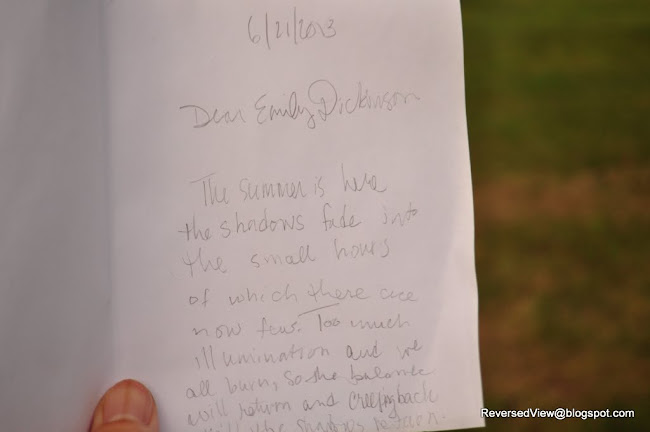 6/21/2013
Dear Emily Dickinson
The summer is here
the shadows fade into
the small hours
of which there are
now few. Too much
illumination and we
all burn, so the balance
will return and creeping back
will the shadows
ReversedView@blogspot.com